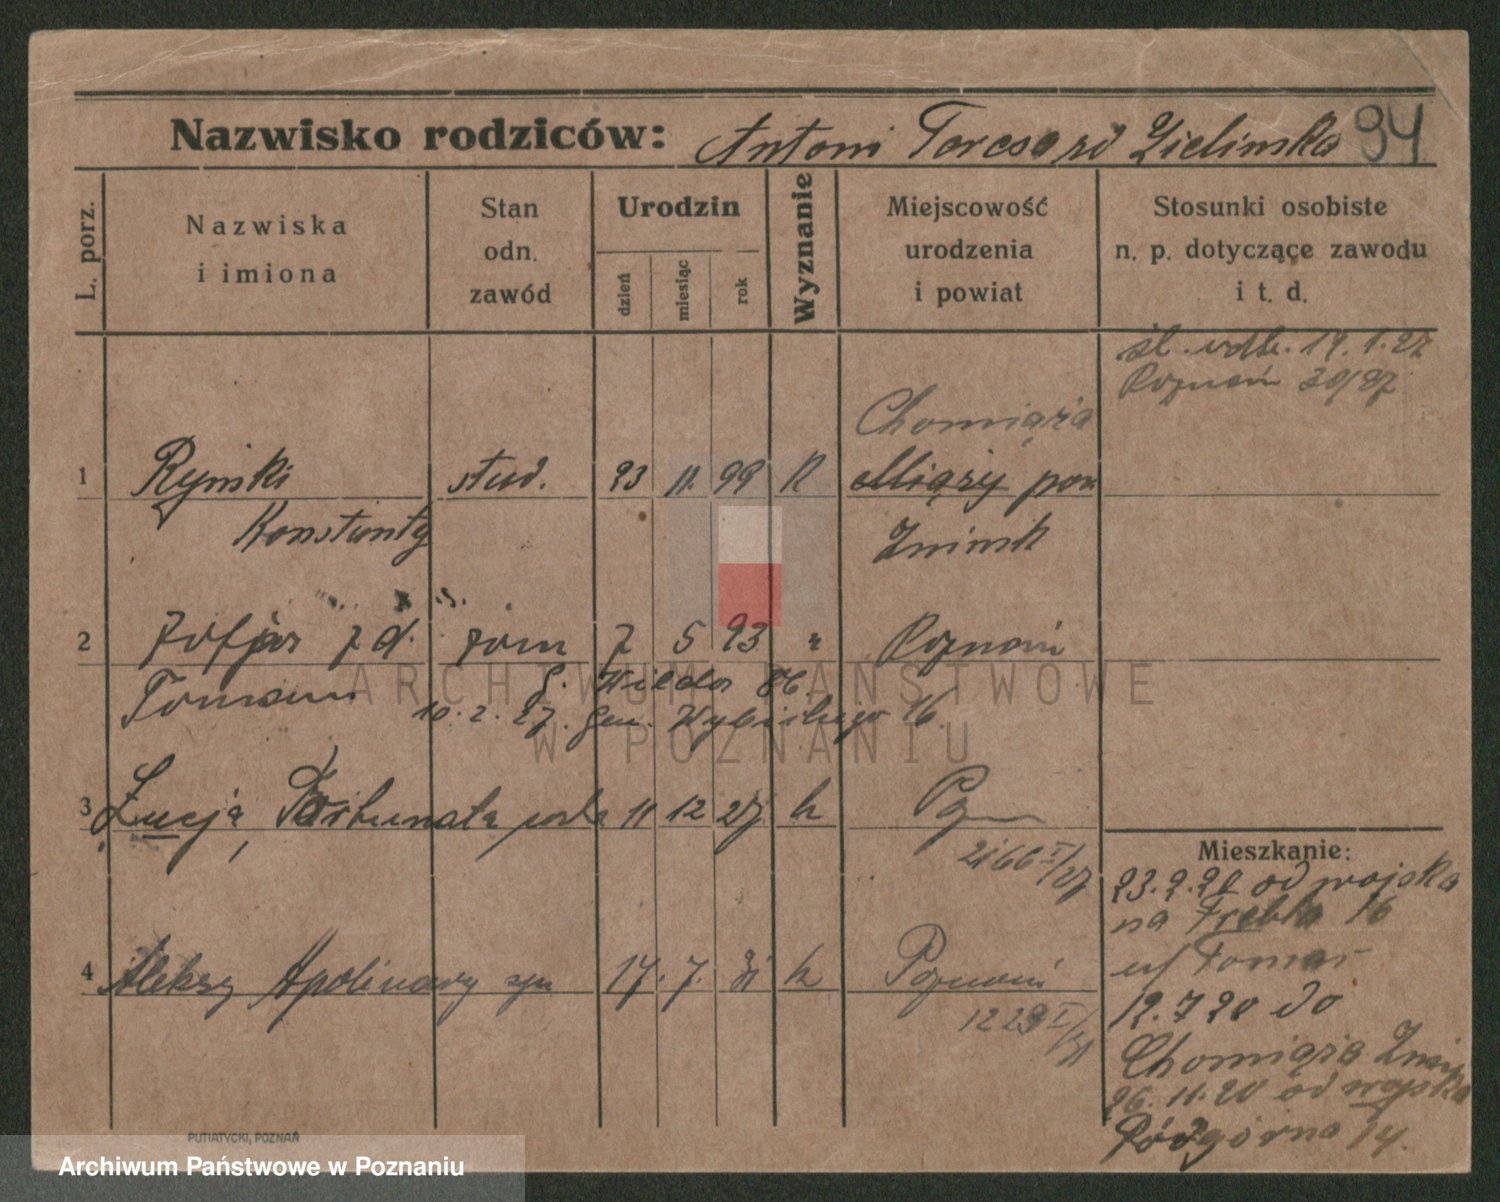 Nazwisko rodziców: Antoni Teresa zd Zielinska 94
L. porz.
Nazwiska
i imiona
Stan
odn.
zawód
Urodzin
dzień
miesiąc
rok
Wyznanie
Miejscowość
urodzenia
i powiat
Stosunki osobiste
n. p. dotyczące zawodu
i t. d.
śl. 19.1.27
Poznań 30/27
Chomiąża
1 Rynski stud. 23 11. 99 K pow
Konstanty Zninsk
2 Zofja z d. żona 7 5 93 " Poznań
Tomaun G. Wilda 86.
10.2.27. Gen. Wybickiego 16
3 Łucja, Fortunata córka 11 12 27 k Pozn
2166 I/27
Mieszkanie:
23.2.20 od wojska
na 16
u/ Tomas
4 Aleksy Apolinary syn 17. 7. 31 k Poznań
1223 I/31
12.7 20 do
Chomiąza Znin
26.11.20 od wojska
Podgórna 14.
PUTIATYCKI, POZNAŃ
ARCHIWUM PAŃSTWOWE
W POZNANIU
Archiwum Państwowe w Poznaniu